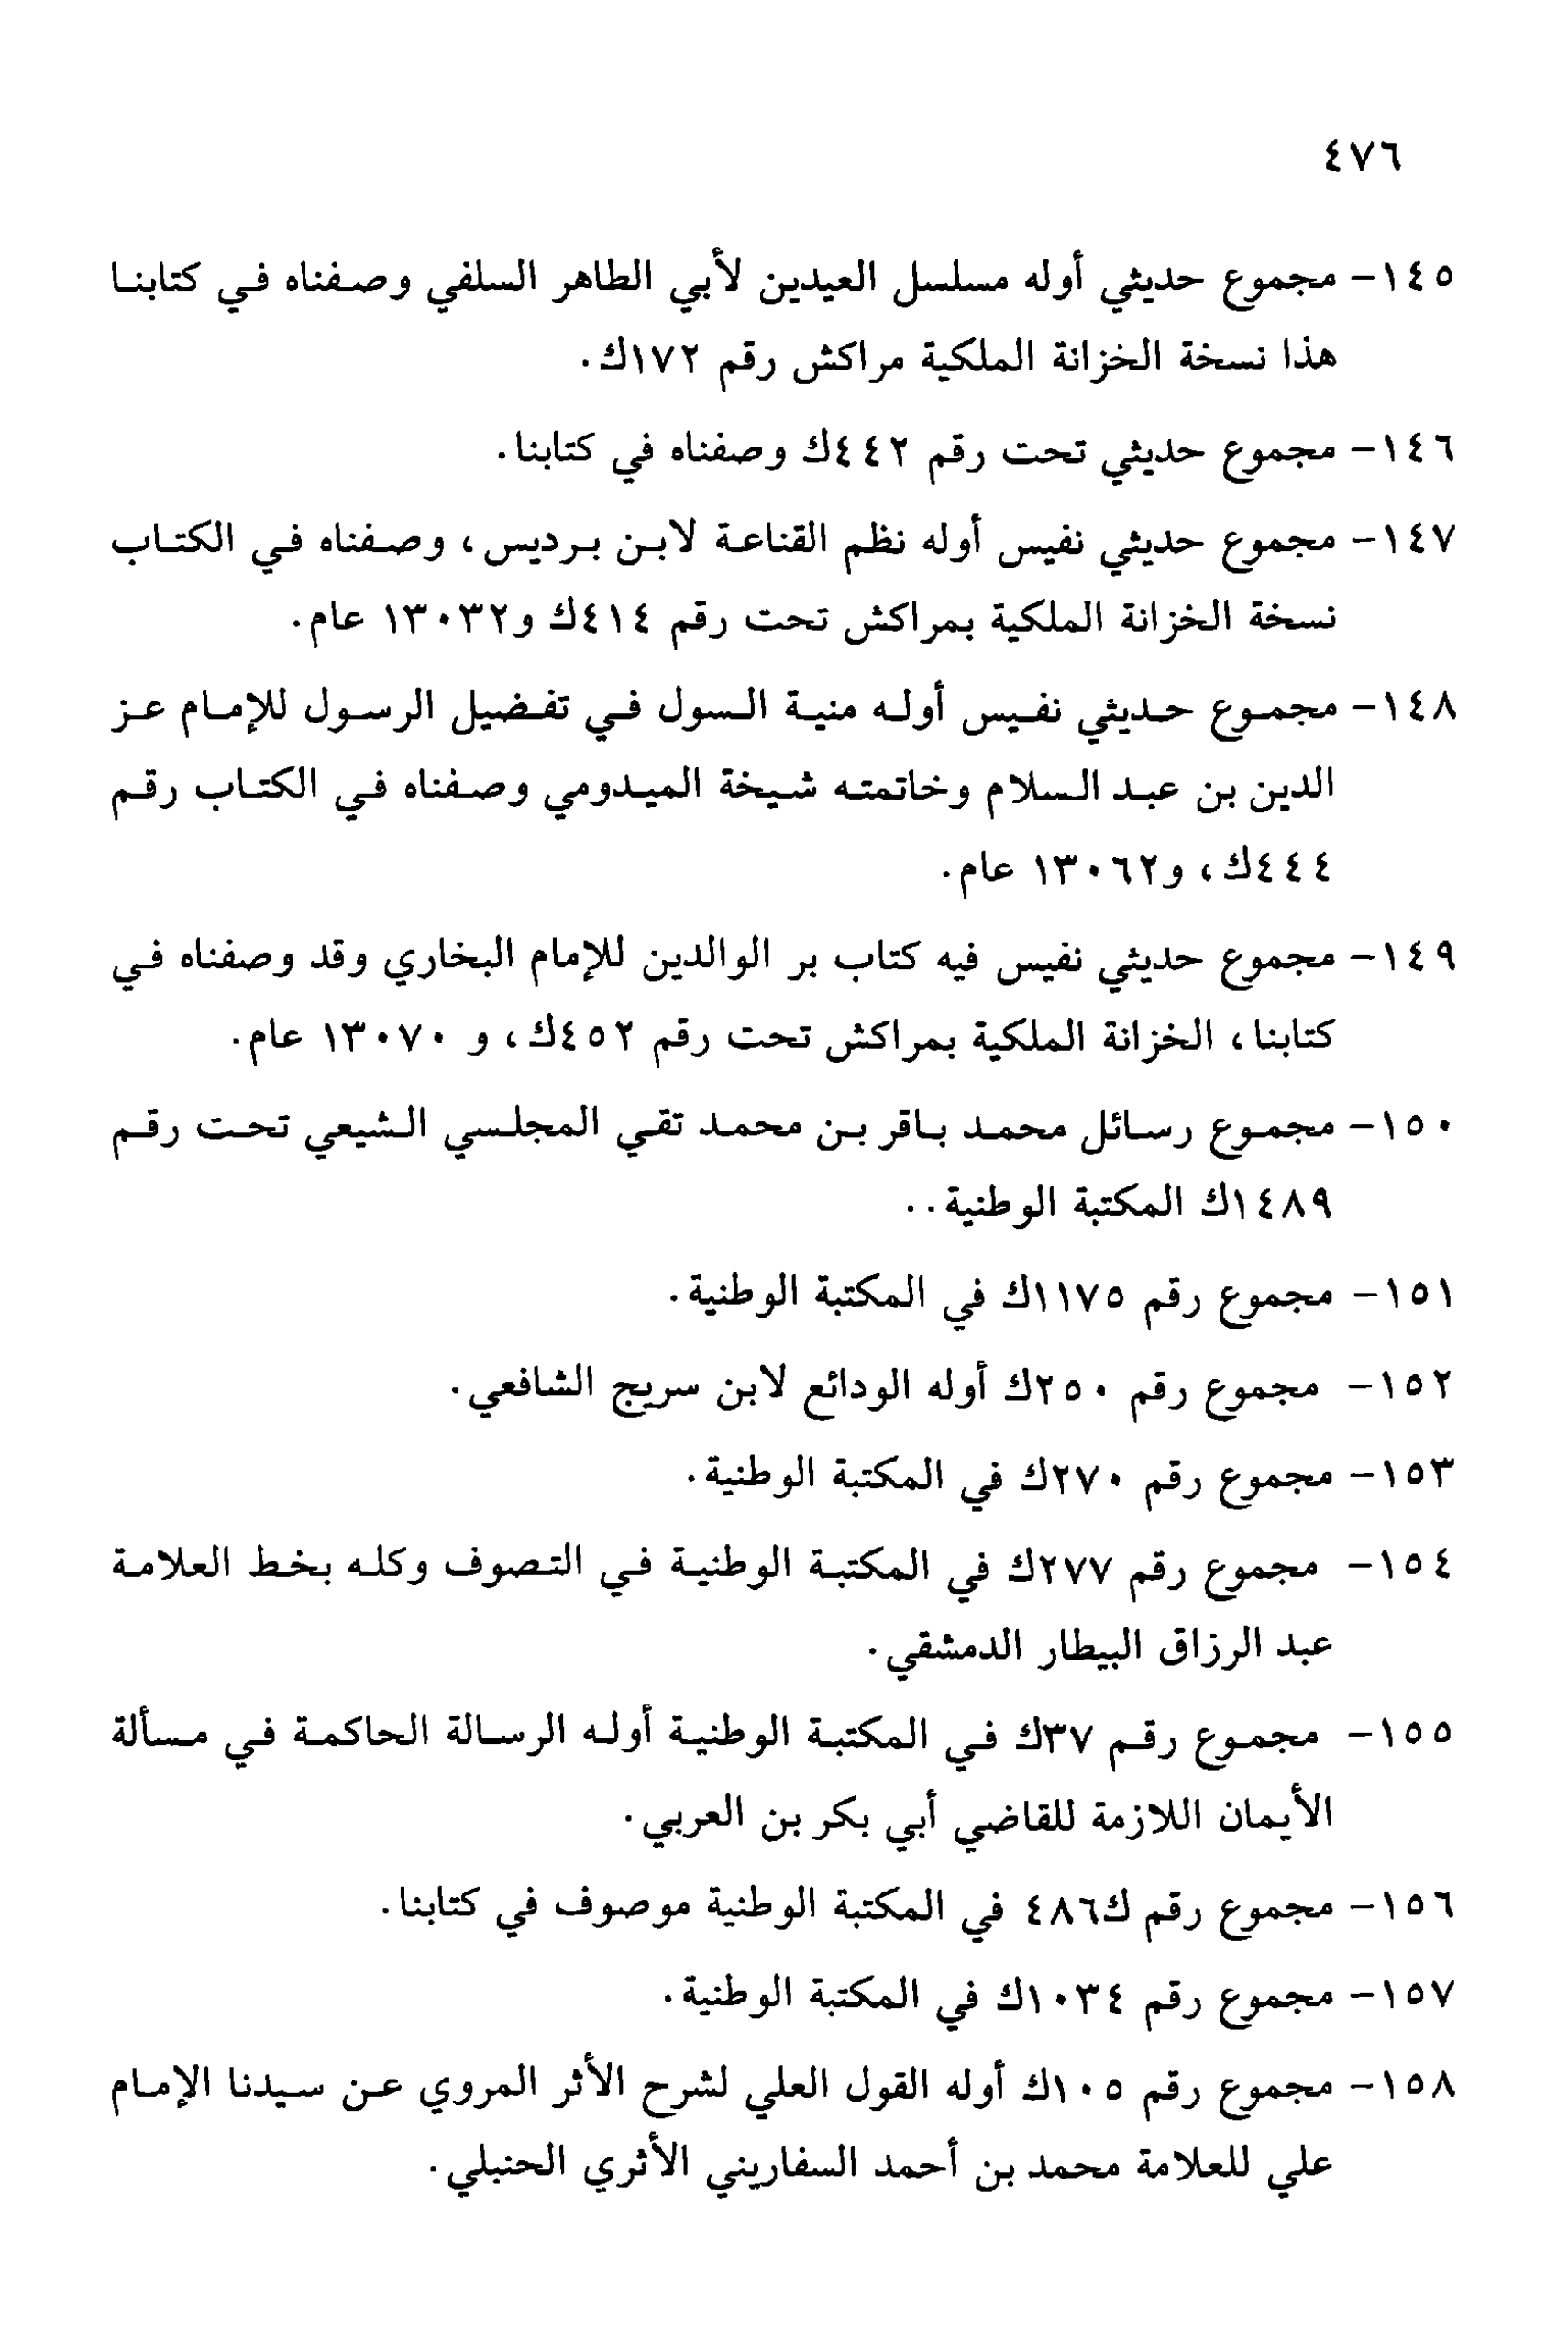 ٤٧٦
١٤٥- مجموع حديثي أوله مسلسل العيدين لأبي الطاهر السلفي وصفناه في كتابنا
هذا نسخة الخزانة الملكية مراكش رقم ١٧٢ك.
١٤٦- مجموع حديثي تحت رقم ٤٤٢ك وصفناه في كتابنا.
١٤٧- مجموع حديثي نفيس أوله نظم القناعة لابن برديس، وصفناه في الكتاب
نسخة الخزانة الملكية بمراكش تحت رقم ٤١٤ك و١٣٠٣٢ عام.
١٤٨- مجموع حديثي نفيس أوله منية السول في تفضيل الرسول للإمام عز
الدين بن عبد السلام وخاتمته شيخة الميدومي وصفناه في الكتاب رقم
٤٤٤ك، و١٣٠٦٢ عام.
١٤٩- مجموع حديثي نفيس فيه كتاب بر الوالدين للإمام البخاري وقد وصفناه في
كتابنا، الخزانة الملكية بمراكش تحت رقم ٤٥٢ك، و ١٣٠٧٠ عام.
١٥٠- مجموع رسائل محمد باقر بن محمد تقي المجلسي الشيعي تحت رقم
١٤٨٩ك المكتبة الوطنية..
١٥١- مجموع رقم ١١٧٥ك في المكتبة الوطنية.
١٥٢- مجموع رقم ٢٥٠ك أوله الودائع لابن سريج الشافعي.
١٥٣- مجموع رقم ٢٧٠ك في المكتبة الوطنية.
١٥٤- مجموع رقم ٢٧٧ك في المكتبة الوطنية في التصوف وكله بخط العلامة
عبد الرزاق البيطار الدمشقي.
١٥٥- مجموع رقم ٣٧ك في المكتبة الوطنية أوله الرسالة الحاكمة في مسألة
الأيمان اللازمة للقاضي أبي بكر بن العربي.
١٥٦- مجموع رقم ك٤٨٦ في المكتبة الوطنية موصوف في كتابنا.
١٥٧- مجموع رقم ١٠٣٤ك في المكتبة الوطنية.
١٥٨- مجموع رقم ١٠٥ك أوله القول العلي لشرح الأثر المروي عن سيدنا الإمام
علي للعلامة محمد بن أحمد السفاريني الأثري الحنبلي.